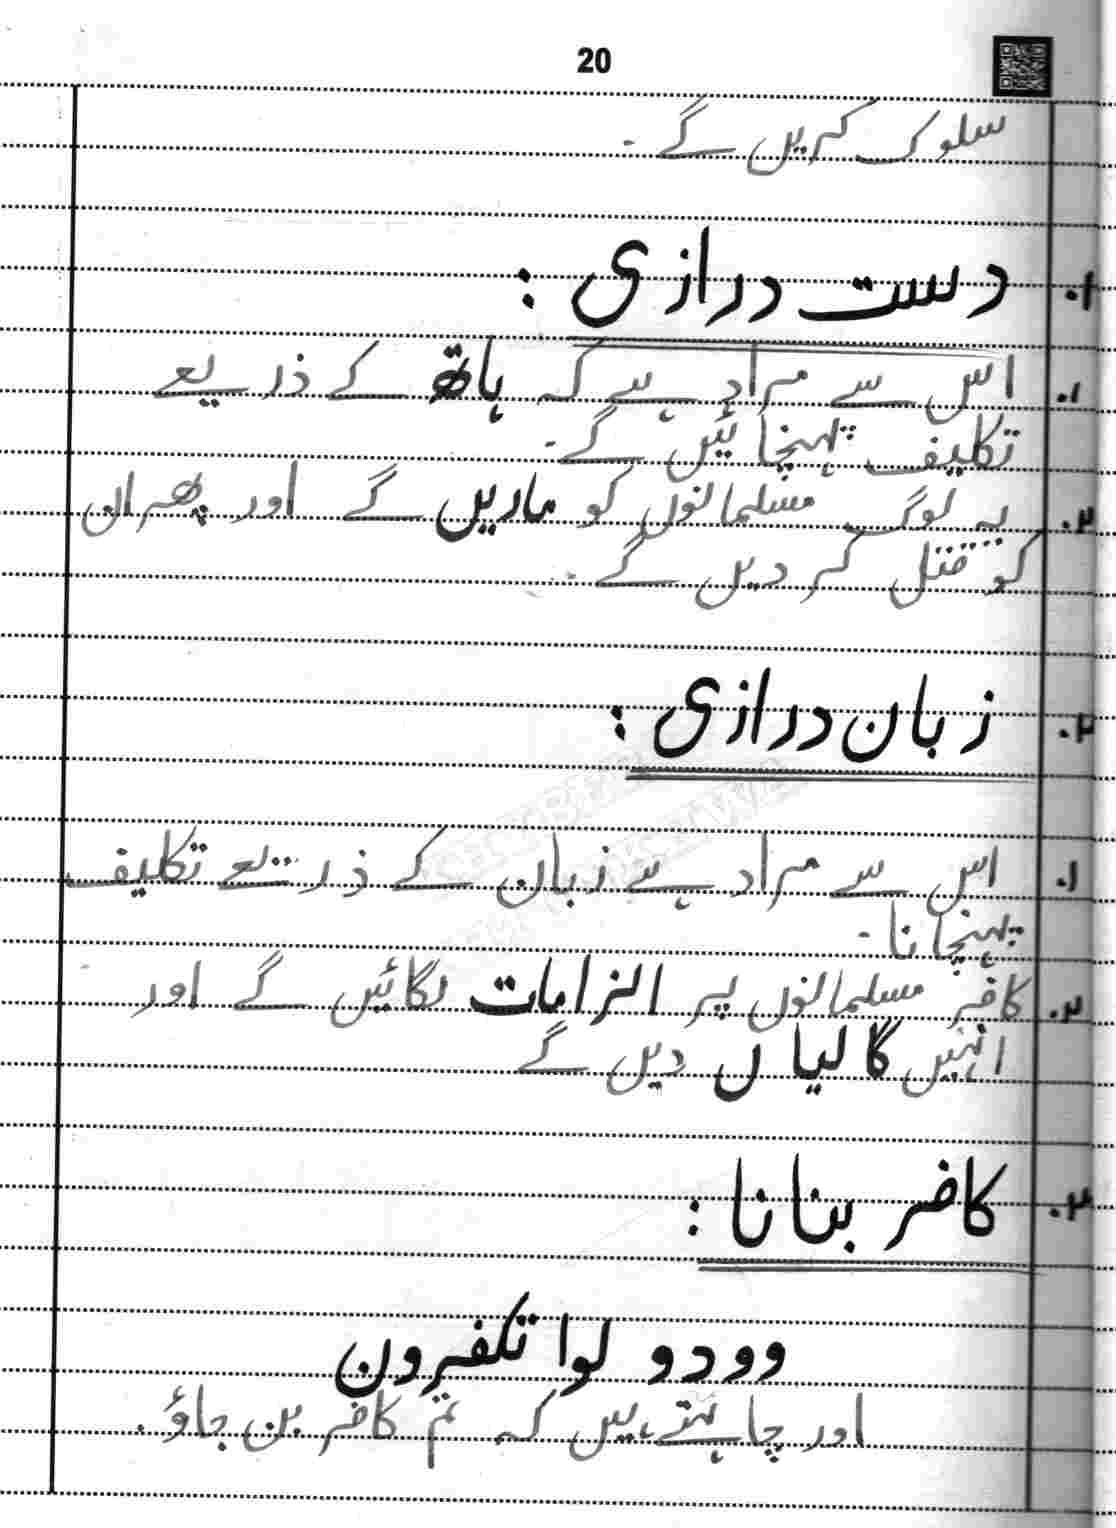 20
سلوک کریں گے ۔
۱. دست درازی :
۱. اس سے مراد ہے کہ ہاتھ کے ذریعے
تکلیف پہنچائیں گے۔
۲. یہ لوگ مسلمانوں کو ماریں گے اور پھر ان
کو قتل کر دیں گے ۔
۲. زبان درازی :
۱. اس سے مراد ہے زبان کے ذریعے تکلیف
پہنچانا۔
۲. کافر مسلمانوں پر الزامات لگائیں گے اور
انہیں گالیاں دیں گے
۳. کافر بنانا :
وودو لوا تکفرون
اور چاہتے ہیں کہ تم کافر بن جاؤ ۔